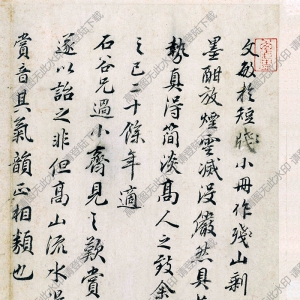 文敏於短牋小冊作殘山剩
墨酣放煙雲滅没儼然具
勢真得簡淡高人之致余
之已二十餘年適
石谷兄過小齋見之歎賞
遂以詒之非但高山流水
賞音其氣韻正相類也